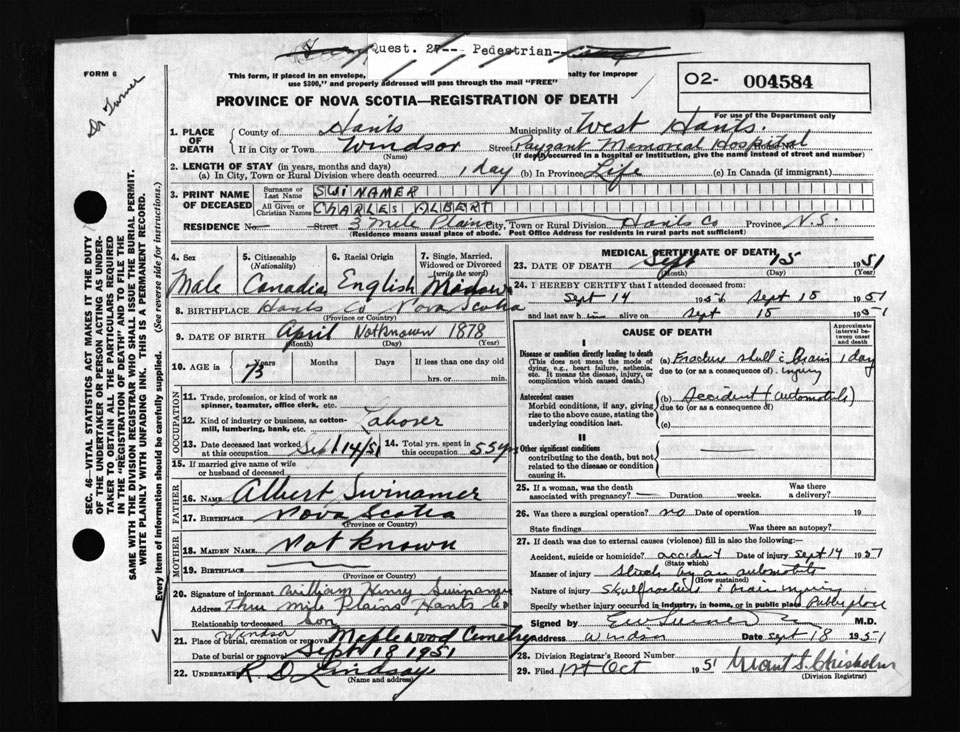 Quest. 27-- Pedestrian--
FORM 6
Dr Turner
This form, if placed in an envelope, nalty for improper
use $300," and properly addressed will pass through the mail "FREE"
O2- 004584
For use of the Department only
PROVINCE OF NOVA SCOTIA—REGISTRATION OF DEATH
1. PLACE OF DEATH
County of Hants Municipality of West Hants.
If in City or Town Windsor Street Payzant Memorial Hospital
(Name) (If death occurred in a hospital or institution, give the name instead of street and number)
2. LENGTH OF STAY (in years, months and days)
(a) In City, Town or Rural Division where death occurred. 1 day (b) In Province Life (c) In Canada (if immigrant)
3. PRINT NAME OF DECEASED
Surname or Last Name SWINAMER
All Given or Christian Names CHARLES ALBERT
RESIDENCE No.— Street 3 Mile Plains City, Town or Rural Division Hants Co Province N.S.
(Residence means usual place of abode. Post Office Address for residents in rural parts not sufficient)
4. Sex Male
5. Citizenship (Nationality) Canadian
6. Racial Origin English
7. Single, Married, Widowed or Divorced (write the word) Widow
8. BIRTHPLACE Hants Co Nova Scotia
(Province or Country)
9. DATE OF BIRTH April Not Known 1878
(Month) (Day) (Year)
10. AGE in 73 Years Months Days If less than one day old
hrs. or min.
OCCUPATION
11. Trade, profession, or kind of work as
spinner, teamster, office clerk, etc.
12. Kind of industry or business, as cotton-
mill, lumbering, bank, etc. Laborer
13. Date deceased last worked at this occupation Sept 14/51
14. Total yrs. spent in this occupation 55 yrs
15. If married give name of wife
or husband of deceased
FATHER
16. NAME Albert Swinamer
17. BIRTHPLACE Nova Scotia
(Province or Country)
MOTHER
18. MAIDEN NAME Not Known
19. BIRTHPLACE
(Province or Country)
20. Signature of informant William Henry Swinamer
Address Three Mile Plains Hants Co
Relationship to deceased Son
21. Place of burial, cremation or removal Windsor Maplewood Cemetery
Date of burial or removal Sept 18 1951
22. UNDERTAKER R. D. Lindsay
(Name and address)
MEDICAL CERTIFICATE OF DEATH
23. DATE OF DEATH Sept 15 1951
(Month) (Day) (Year)
24. I HEREBY CERTIFY that I attended deceased from:
Sept 14 195 to Sept 15 1951
and last saw him alive on Sept 15 1951
CAUSE OF DEATH
Approximate interval between onset and death
I
Disease or condition directly leading to death
(This does not mean the mode of
dying, e.g., heart failure, asthenia,
etc. It means the disease, injury, or
complication which caused death.)
(a) Fracture skull & Brain injury 1 day
due to (or as a consequence of)
Antecedent causes
Morbid conditions, if any, giving
rise to the above cause, stating the
underlying condition last.
(b) Accident (automobile)
due to (or as a consequence of)
(c)
II
Other significant conditions
contributing to the death, but not
related to the disease or condition
causing it.
25. If a woman, was the death Was there
associated with pregnancy? — Duration weeks. a delivery?
26. Was there a surgical operation? no Date of operation 19
State findings Was there an autopsy?
27. If death was due to external causes (violence) fill in also the following:
Accident, suicide or homicide? accident Date of injury Sept 14 1951
(State which)
Manner of injury Struck by an automobile
(How sustained)
Nature of injury Skull fracture & brain injury
Specify whether injury occurred in industry, in home, or in public place Public place
Signed by M.D.
Address Windsor Date Sept 18 1951
28. Division Registrar's Record Number
29. Filed 1st Oct 1951 Grant S. Chisholm
(Division Registrar)
SEC. 46—VITAL STATISTICS ACT MAKES IT THE DUTY
OF THE UNDERTAKER OR PERSON ACTING AS UNDER-
TAKER TO OBTAIN ALL THE PARTICULARS REQUIRED
IN THE "REGISTRATION OF DEATH" AND TO FILE THE
SAME WITH THE DIVISION REGISTRAR WHO SHALL ISSUE THE BURIAL PERMIT.
WRITE PLAINLY WITH UNFADING INK. THIS IS A PERMANENT RECORD.
Every item of information should be carefully supplied. (See reverse side for instructions.)